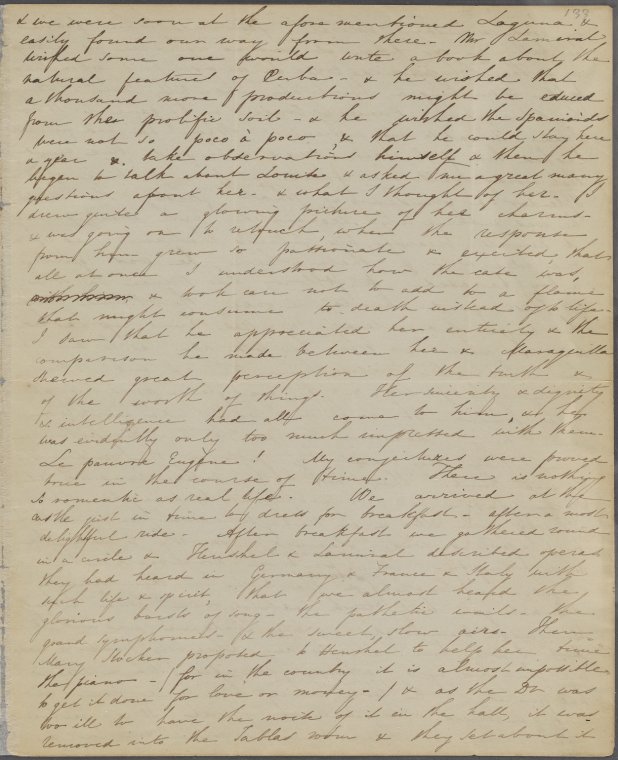 133
& we were soon at the afore mentioned Laguna &
easily found our way from there - Mr Lamiral
wished some one would write a book about the
natural features of Cuba - & he wished that
a thousand more productions might be educed
from this prolific soil - & he wished the Spaniards
were not so poco à poco, & that he could stay here
a year & take observations himself & then he
began to talk about Louise & asked me a great many
questions about her - & what I thought of her. I
drew quite a glowing picture of her charms -
& was going on to retouch, when the response
from him grew so passionate & excited, that
all at once I understood how the case was,
& took care not to add to a flame
that might consume to death instead of to life -
I saw that he appreciated her entirely & the
comparison he made between her &
shewed great perception of the truth &
of the worth of things. Her sincerity & dignity
& intelligence had all come to him, & he
was evidently only too much impressed with them -
Le pauvre Eugène! My conjectures were proved
true in the course of time. There is nothing
so romantic as real life. We arrived at the
just in time to dress for breakfast - after a most
delightful ride - After breakfast we gathered round
in a circle & Henshel & Lamiral described operas
they had heard in Germany & France & Italy with
such life & spirit, that we almost heard the
glorious bursts of song - the pathetic wails - the
grand symphonies - & the sweet, slow airs - Then
Mary proposed to Henshel to help her tune
the piano - (for in the country it is almost impossible
to get it done for love or money -) & as the Dr was
too ill to have the noise of it in the hall, it was
removed into the Tablas room & they set about it